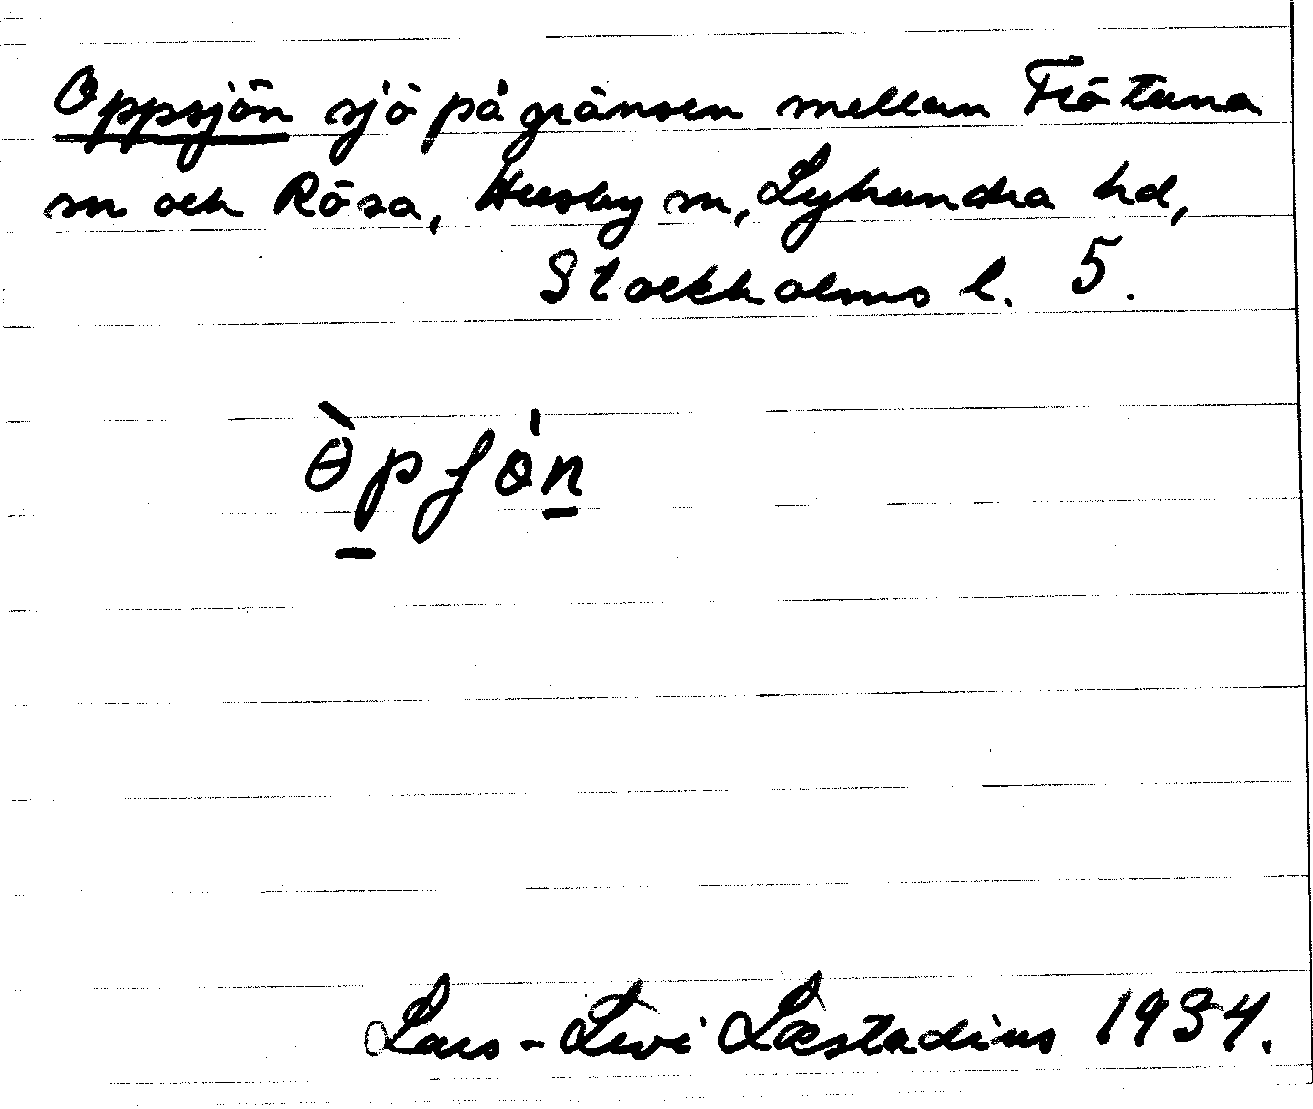 Oppsjön sjö på gränsen mellan Frötuna
sn och Rösa, Husby sn, Lyhundra hd,
Stockholms l. 5.
Ɵ̀pʃön
Lars-Levi Læstadius 1934.